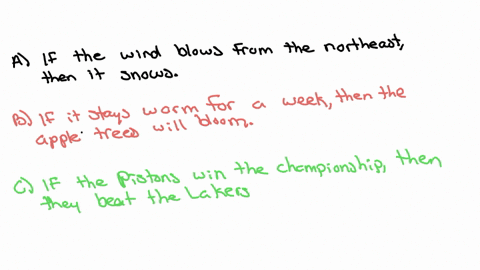 A) If the wind blows from the northeast,
then it snows.
B) If it stays warm for a week, then the
apple trees will bloom.
C) If the Pistons win the championship, then
they beat the Lakers